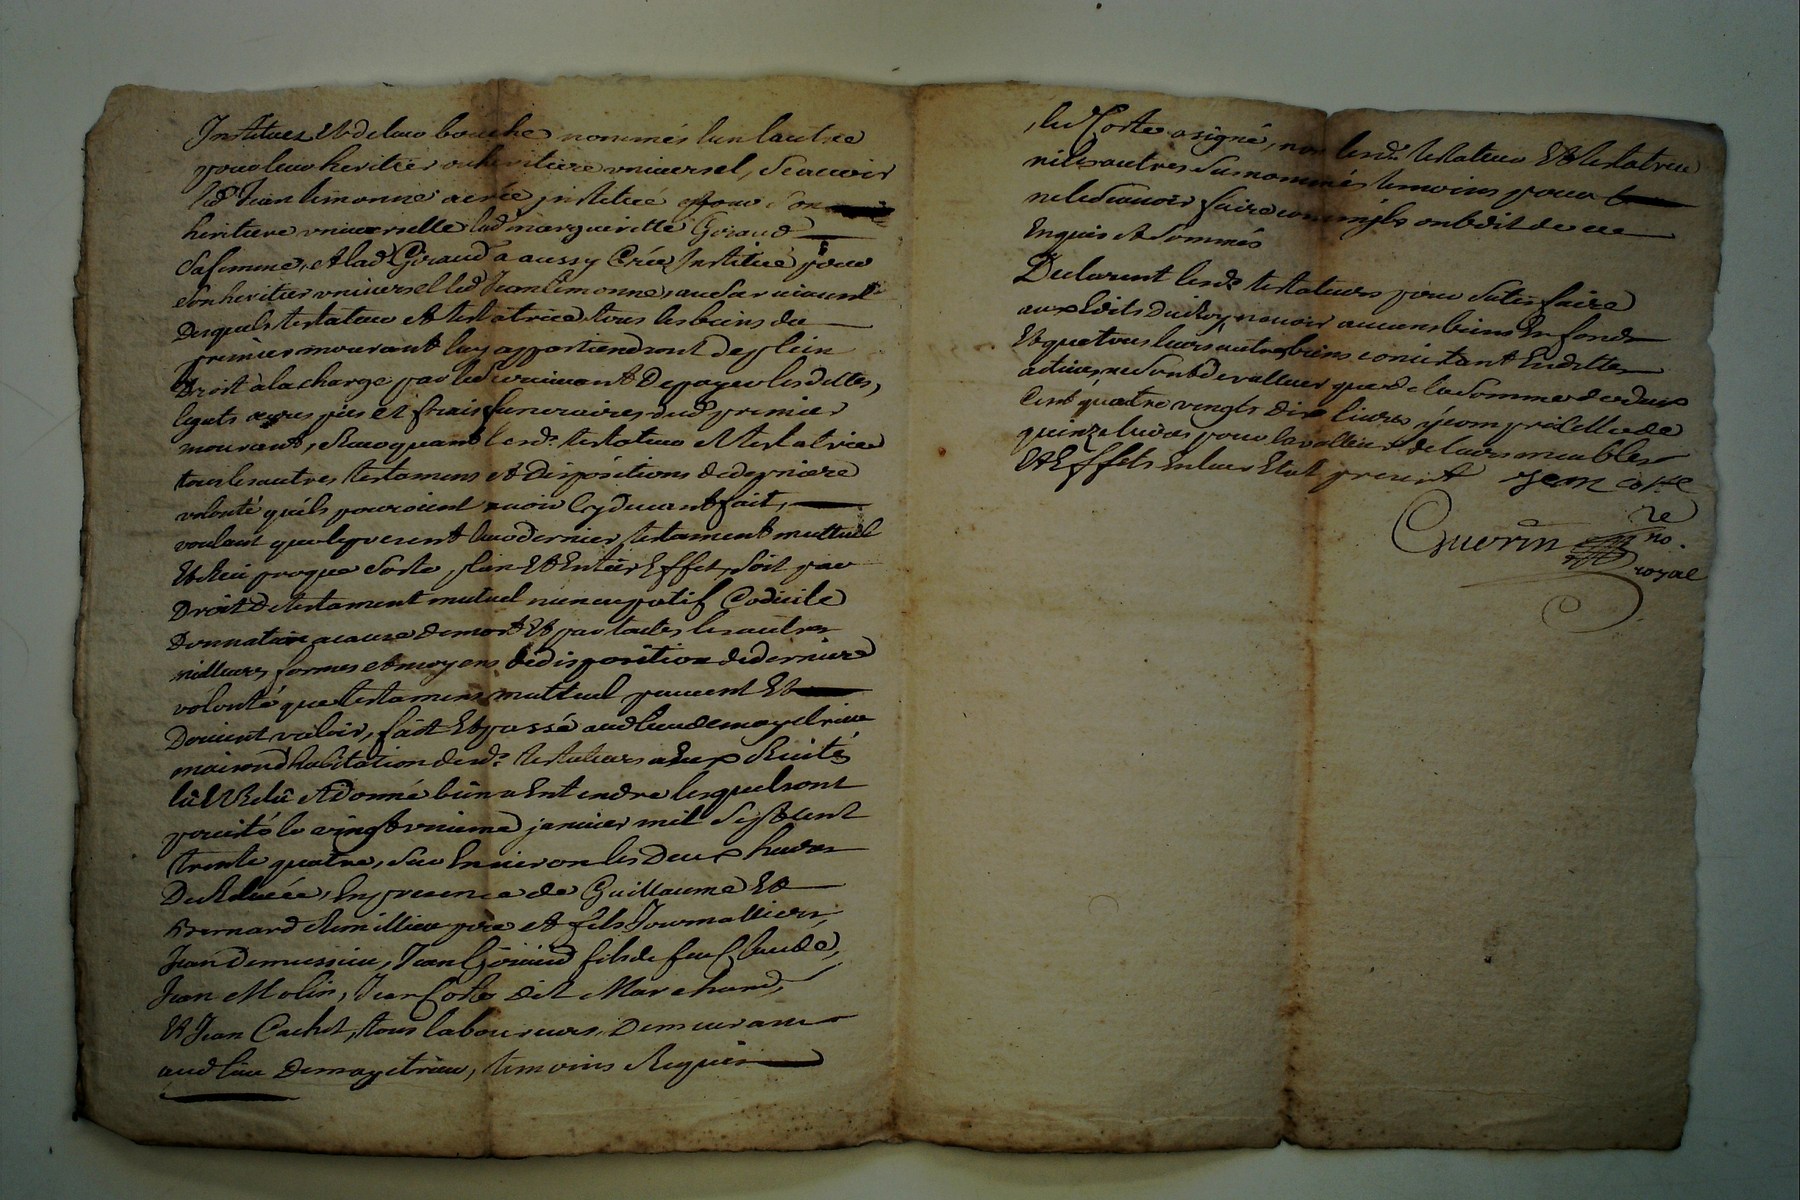 Instituez Et de leur bouche nommés l'un lautre
pour leur heritier ou heritiere vniversel, Scavoir
led Jean limonne a créé jnstitué pour son
heritiere vniverselle lad margueritte Giraud
Sa femme, et lad Giraud a aussy Créé Jnstitué pour
son heritier vniversel led Jean limonne, au Survivant
Desquels testateur et testatrice tous les biens du
premier mourant luy appartiendront de plein
Droit à la charge par led survivant De payer les dettes,
legats œuvres pies et frais funeraires dud premier
mourant, Revoquant lesd. testateur Et testatrice
tous les autres testamens et Dispositions de derniere
volonté quils pouroient avoir Cy devant fait,
voulant que le present leur dernier testament mutuel
Et Reciproque Sorte plein Et Entier Effet, soit par
Droit de testament mutuel nuncupatif Codicile
Donnation a cause de mort Et par toutes les autres
milleurs formes et moyens de disposition de derniere
volonté que testamens mutuel peuvent Et
Doivent valoir, fait Et passé aud lieu de mayetrieu
maison d'habitation desd. testateurs a Eux Recité
lû Et Relû et donné bien a Entendre lesquels ont
persisté le vingt vnieme janvier mil Sept cent
trente quatre, sur Environ les Deux heures
De Relevée, En presence de Guillaume Et
Bernard Remillieu pere et fils Journalliers,
Jean Demussieu, Jean Giraud fils de feu Claude,
Jean Molin, Jean Coste dit Marchand,
Et Jean Cachet, tous laboureurs Demeurans
aud lieu Demayetrieu, temoins Requis
led Coste a signé, non lesd. testateur Et testatrice
ni les autres Surnommés temoins pour
ne le Scavoir faire comme jls ont dit de ce
Enquis et Sommés
Declarent lesd. testateurs pour Satisfaire
aux Edits du Roy, n'avoir aucuns biens En fonds
Et que tous leurs autres biens consistant En dettes
actives, ne Sont de valleur que de la Somme de deux
Cent quatre vingts dix livres y compris Celle de
quinze livres pour la valleur de leurs meubles
Et Effets En leur Etat present Jean coste
Guerin
re
no.
royal